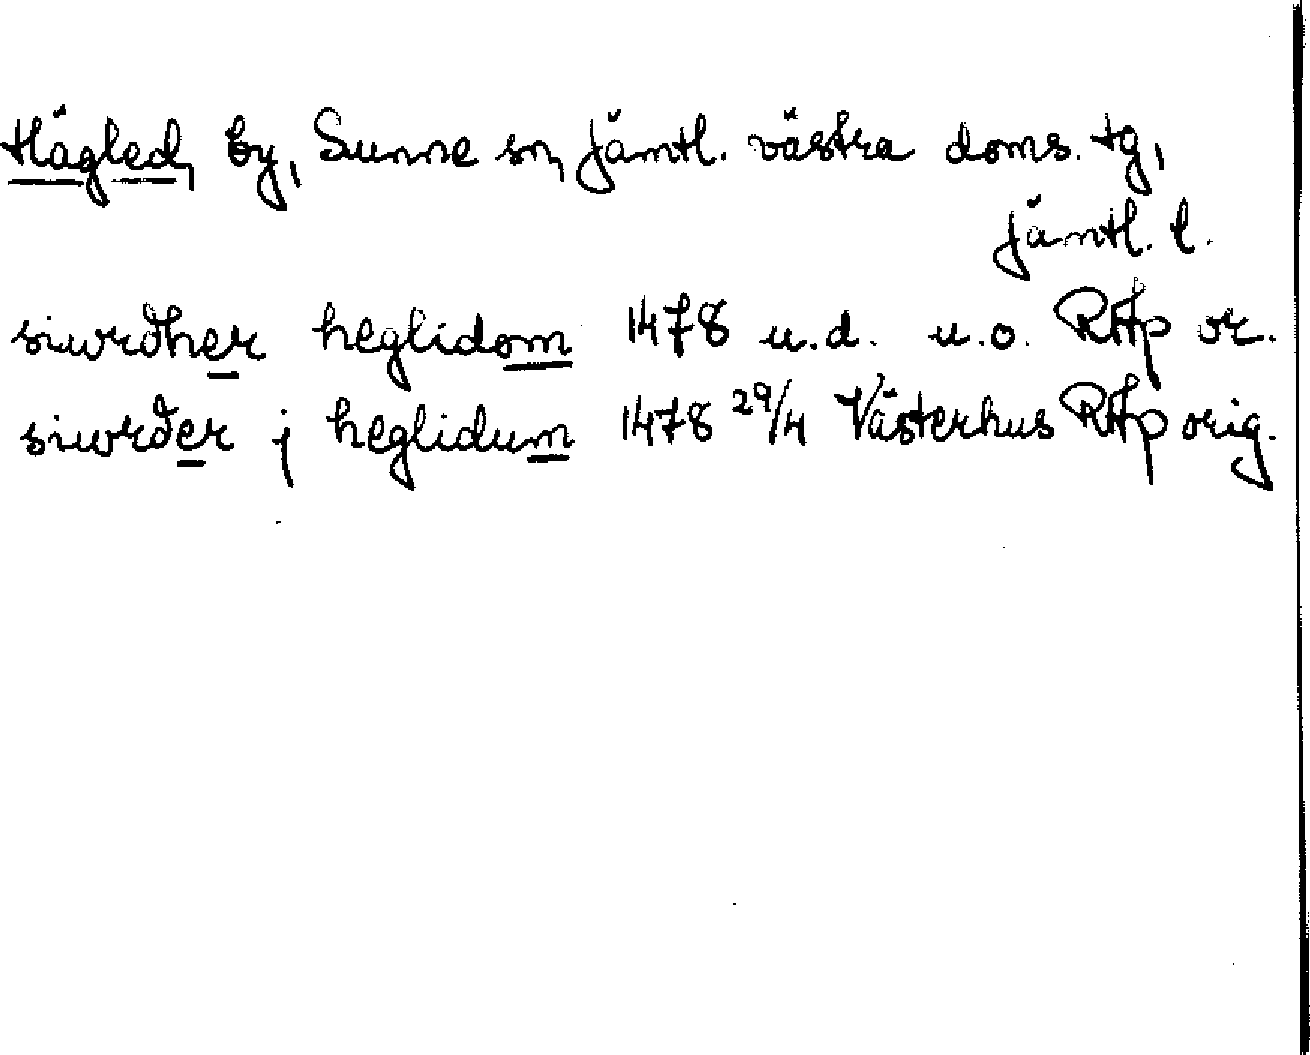 Hägled, by, Sunne sn, Jämtl. västra doms. tg,
Jämtl. l.
siwrðher heglidom 1478 u.d. u.o. RAp or.
siwrðer j heglidum 1478 29/4 Västerhus RAp orig.